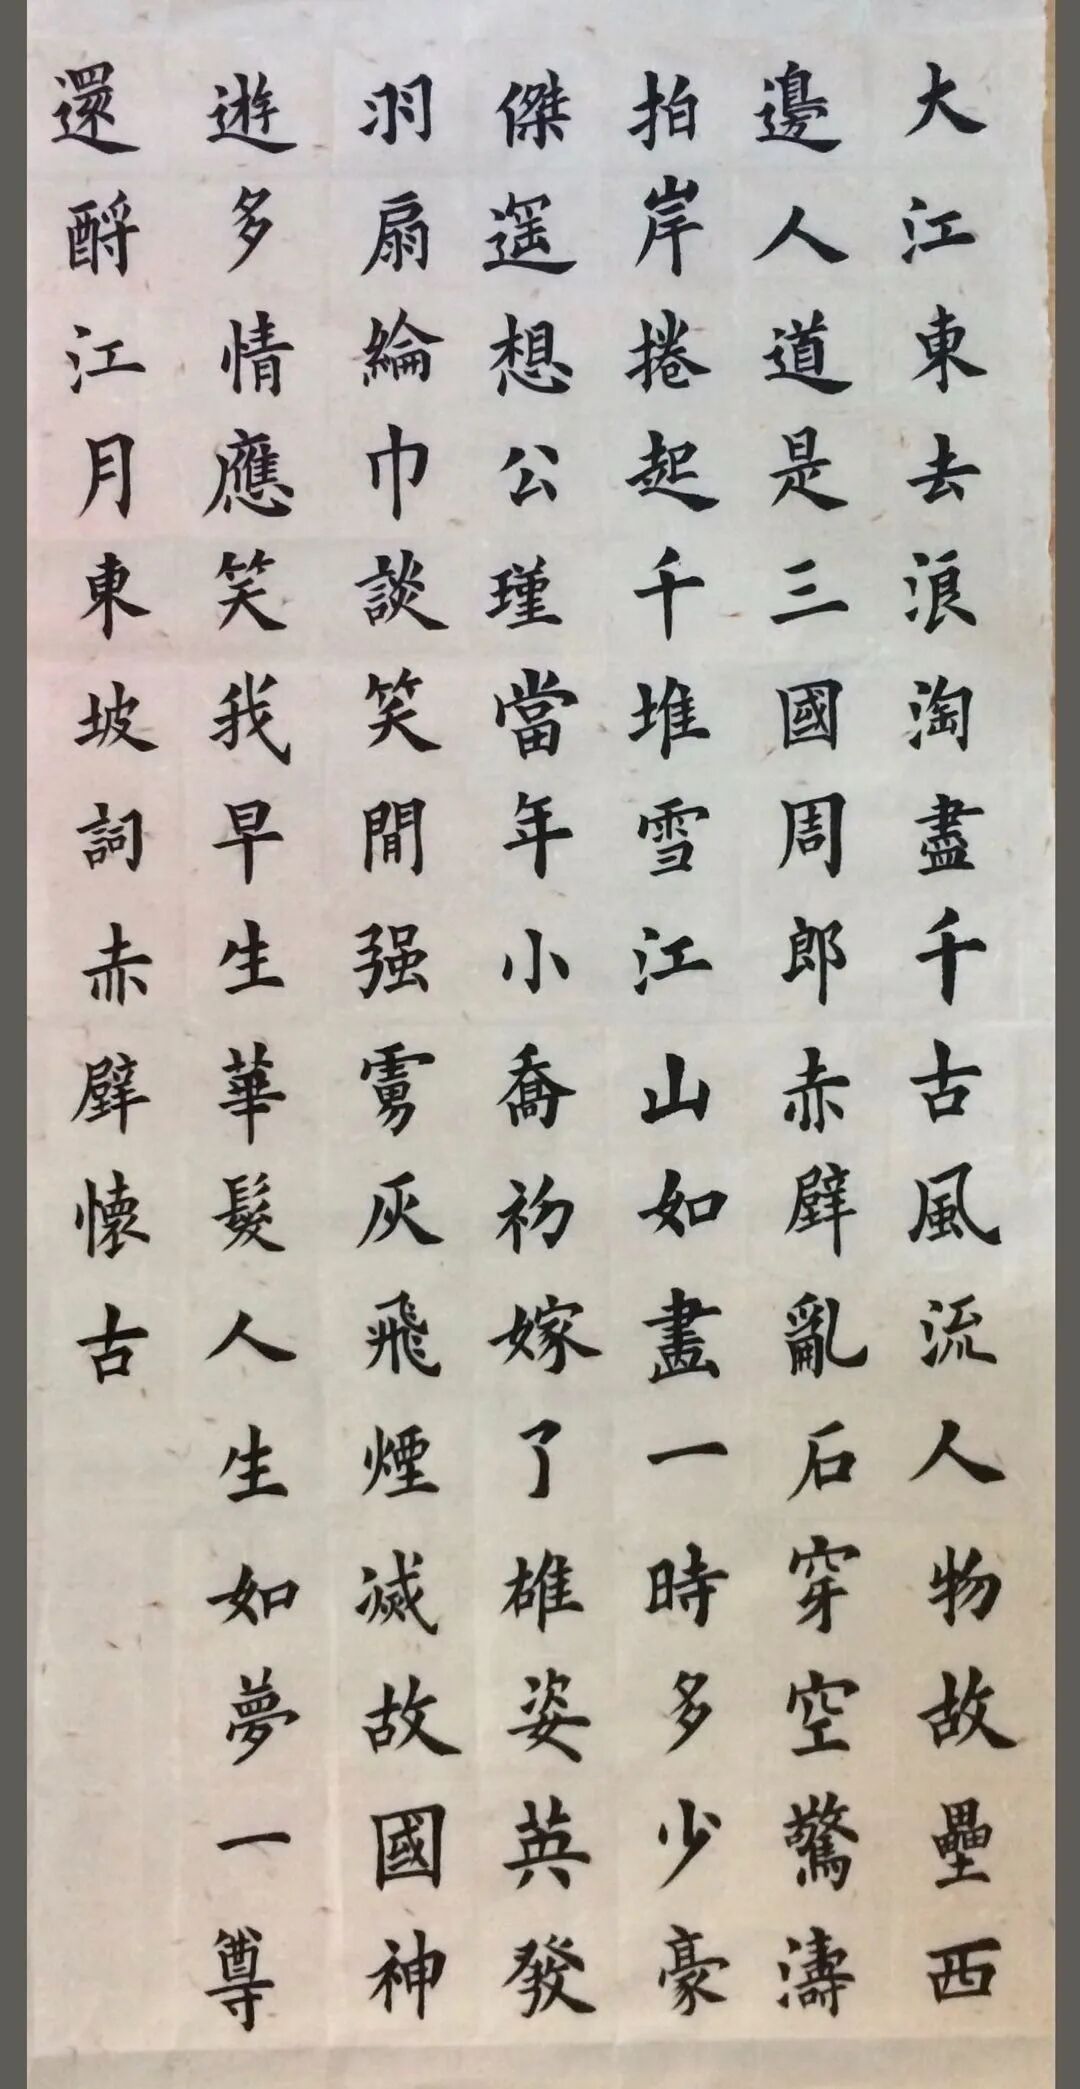 大江東去浪淘盡千古風流人物故壘西
邊人道是三國周郎赤壁亂石穿空驚濤
拍岸捲起千堆雪江山如畫一時多少豪
傑遥想公瑾當年小喬初嫁了雄姿英發
羽扇綸巾談笑間强虜灰飛煙滅故國神
遊多情應笑我早生華髮人生如夢一尊
還酹江月東坡詞赤壁懷古